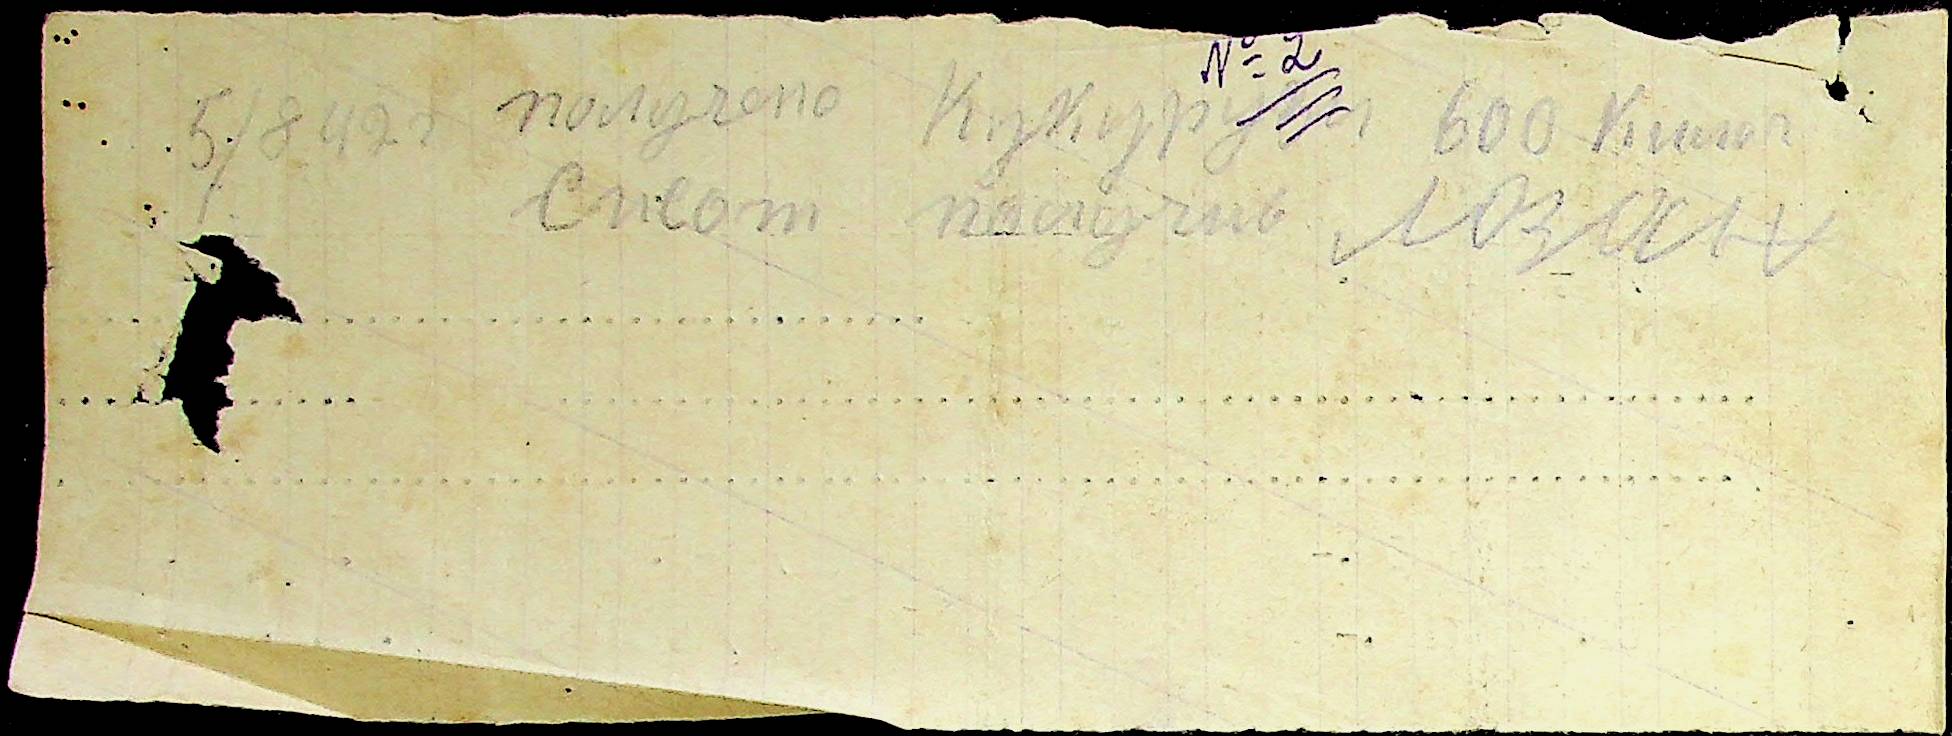 № 2
5/8 42г получено Кукурузы 600 Килог
Счеот получив ЛОЗАН